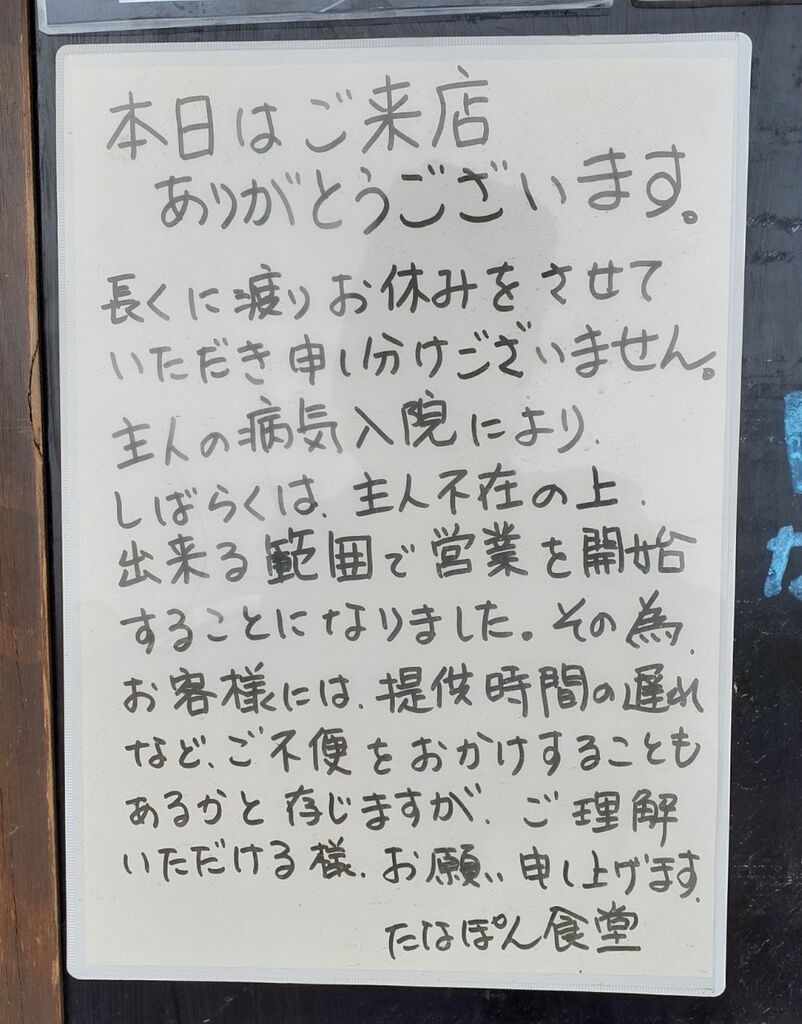 本日はご来店
ありがとうございます。
長くに渡りお休みをさせて
いただき申し分けございません。
主人の病気入院により、
しばらくは、主人不在の上、
出来る範囲で営業を開始
することになりました。その為、
お客様には、提供時間の遅れ
など、ご不便をおかけすることも
あるかと存じますが、ご理解
いただける様、お願い申し上げます。
たなぽん食堂